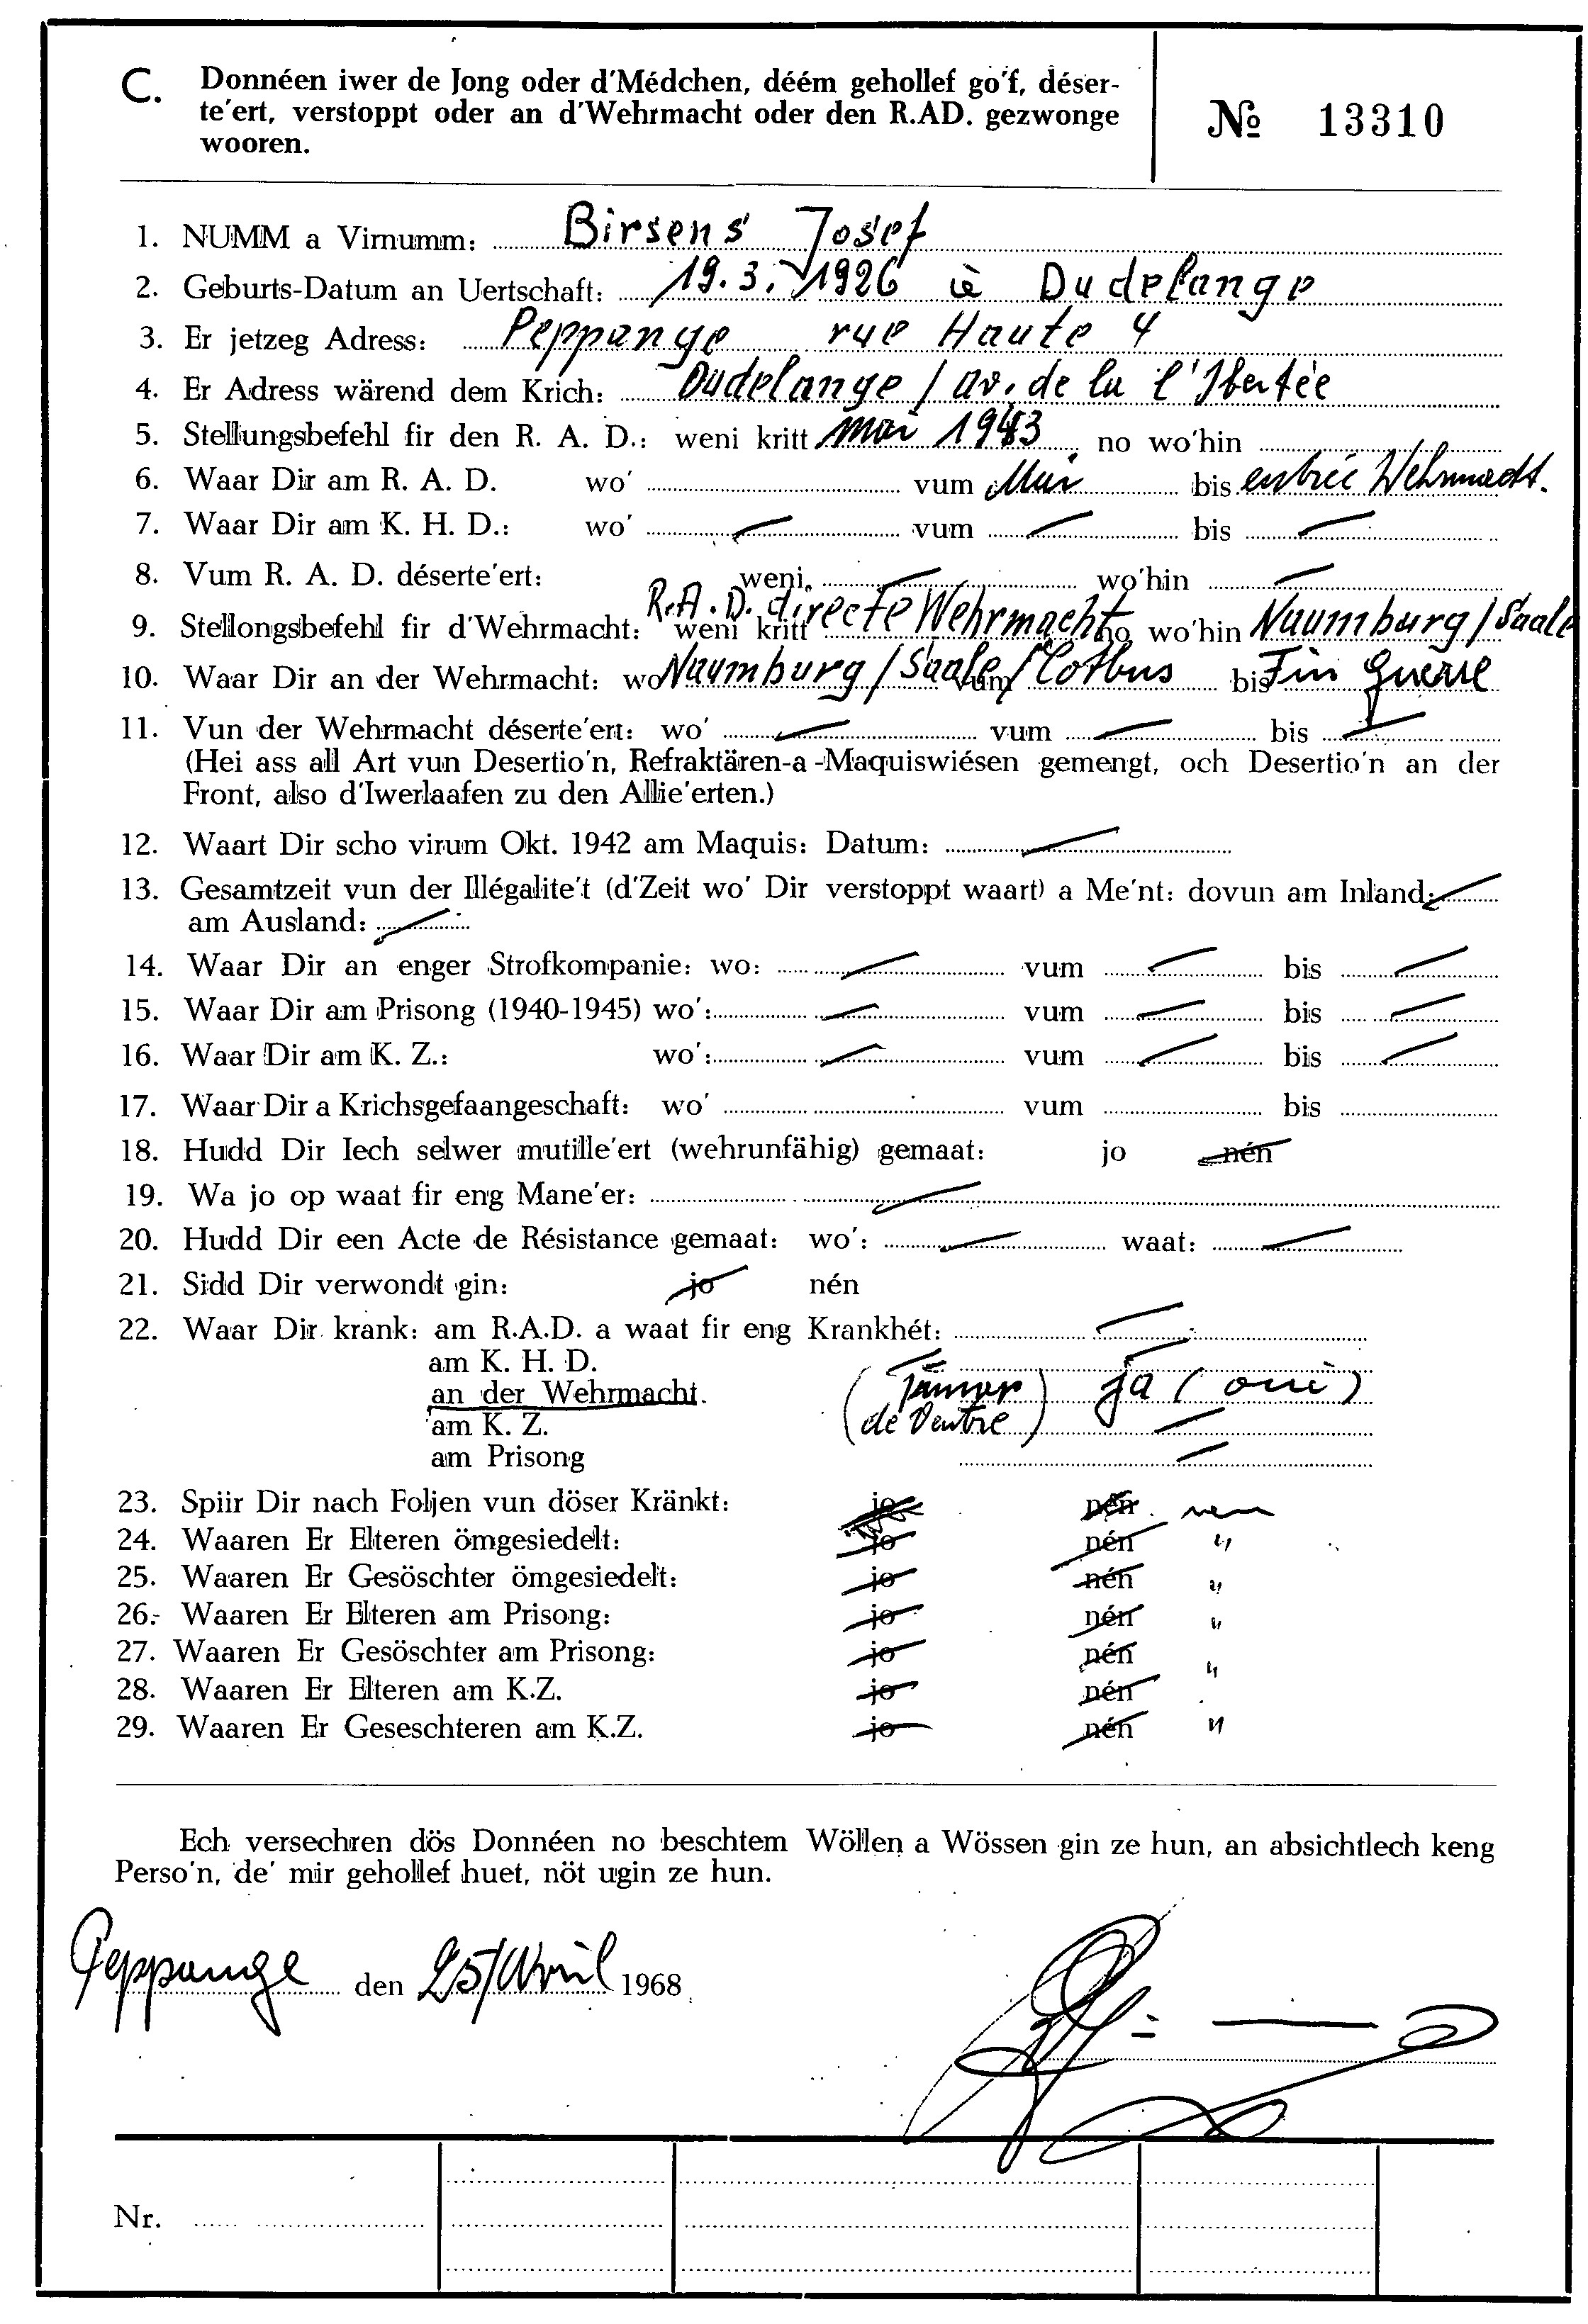 C. Donnéen iwer de Jong oder d'Médchen, déém gehollef go'f, déser-
te'ert, verstoppt oder an d'Wehrmacht oder den R.AD. gezwonge
wooren.
№ 13310
1. NUMM a Virnumm: Birsens Josef
2. Geburts-Datum an Uertschaft: 19.3.1926 à Dudelange
3. Er jetzeg Adress: Peppange rue Haute 4
4. Er Adress wärend dem Krich: Dudelange / av. de la l'Ibertée
5. Stellungsbefehl fir den R. A. D.: weni kritt Mai 1943 no wo'hin
6. Waar Dir am R. A. D. wo' vum Mai bis entrée Wehrmacht.
7. Waar Dir am K. H. D.: wo' — vum — bis —
8. Vum R. A. D. déserte'ert: weni. — wo'hin —
9. Stellongsbefehl fir d'Wehrmacht: weni kritt R.A.D. directe Wehrmacht no wo'hin Naumburg/Saale
10. Waar Dir an der Wehrmacht: wo' Naumburg/Saale/Cotbus vum bis Fin Guerre
11. Vun der Wehrmacht déserte'ert: wo' — vum — bis —
(Hei ass all Art vun Desertio'n, Refraktären-a-Maquiswiésen gemengt, och Desertio'n an der
Front, also d'Iwerlaafen zu den Allie'erten.)
12. Waart Dir scho virum Okt. 1942 am Maquis: Datum: —
13. Gesamtzeit vun der Illégalite't (d'Zeit wo' Dir verstoppt waart) a Me'nt: dovun am Inland: —
am Ausland: —
14. Waar Dir an enger Strofkompanie: wo: — vum — bis —
15. Waar Dir am Prisong (1940-1945) wo': — vum — bis —
16. Waar Dir am K. Z.: wo': — vum — bis —
17. Waar Dir a Krichsgefaangeschaft: wo' vum bis
18. Hudd Dir Iech selwer mutille'ert (wehrunfähig) gemaat: jo nén
19. Wa jo op waat fir eng Mane'er: —
20. Hudd Dir een Acte de Résistance gemaat: wo': — waat: —
21. Sidd Dir verwondt gin: jo nén
22. Waar Dir krank: am R.A.D. a waat fir eng Krankhét: —
am K. H. D. —
an der Wehrmacht. (de Ventre) ja (oui)
am K. Z. —
am Prisong —
23. Spiir Dir nach Foljen vun döser Kränkt: jo nén nen
24. Waaren Er Elteren ömgesiedelt: jo nén "
25. Waaren Er Gesöschter ömgesiedelt: jo nén "
26. Waaren Er Elteren am Prisong: jo nén "
27. Waaren Er Gesöschter am Prisong: jo nén "
28. Waaren Er Elteren am K.Z. jo nén
29. Waaren Er Geseschteren am K.Z. jo nén "
Ech versechren dös Donnéen no beschtem Wöllen a Wössen gin ze hun, an absichtlech keng
Perso'n, de' mir gehollef huet, nöt ugin ze hun.
Peppange den 25/Avril 1968
Nr.